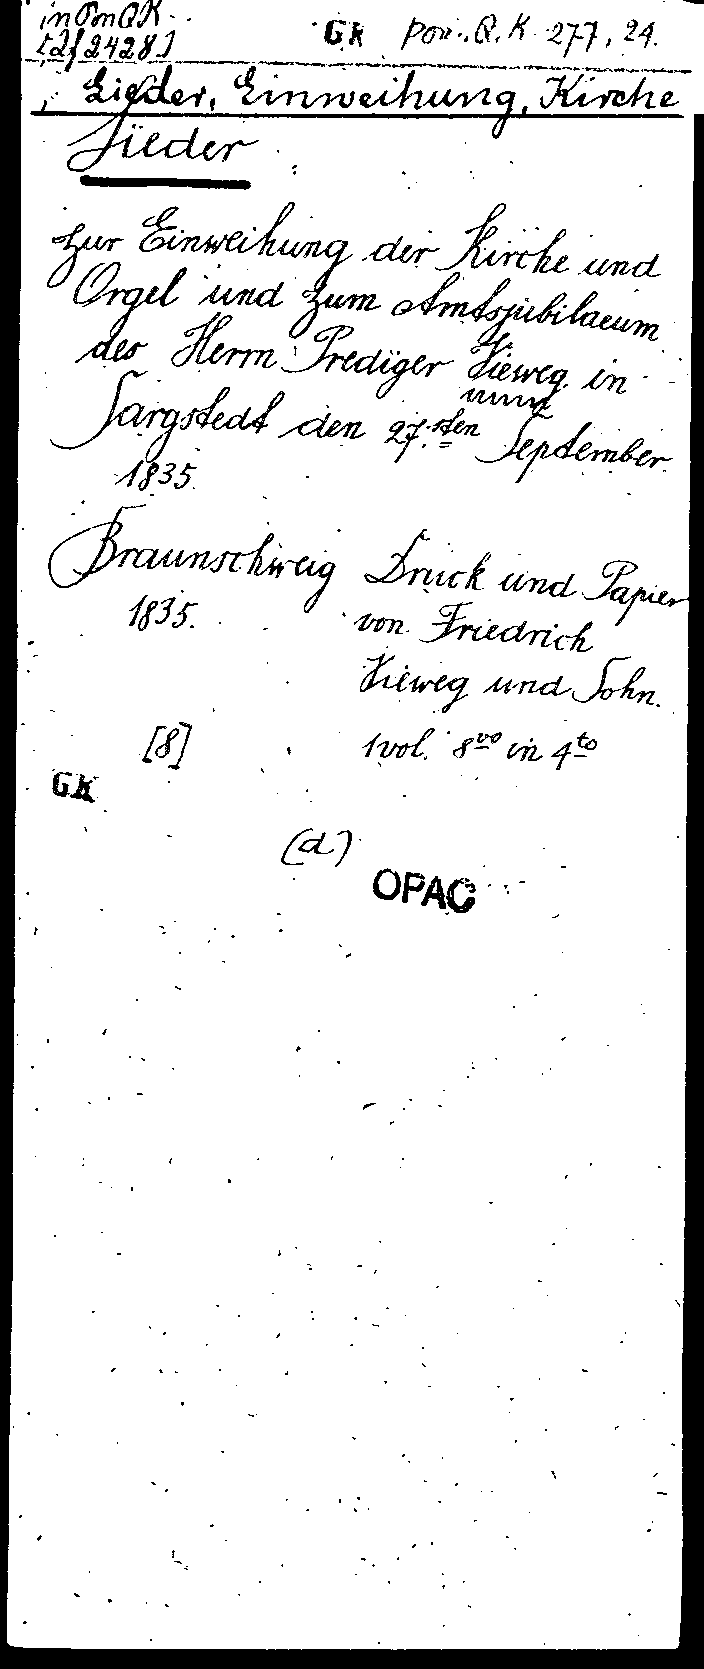 in Pon QK
[2f 2428]
GK Pon. Q. K. 277, 24.
, Lieder, Einweihung, Kirche
Lieder
zur Einweihung der Kirche und
Orgel und zum Amtsjubilaeum
des Herrn Prediger Vieweg in
Sargstedt den 27.sten September
1835.
Braunschweig Druck und Papier
1835. von Friedrich
Vieweg und Sohn.
[8] 1 vol. 8vo in 4to
GK
(d)
OPAC